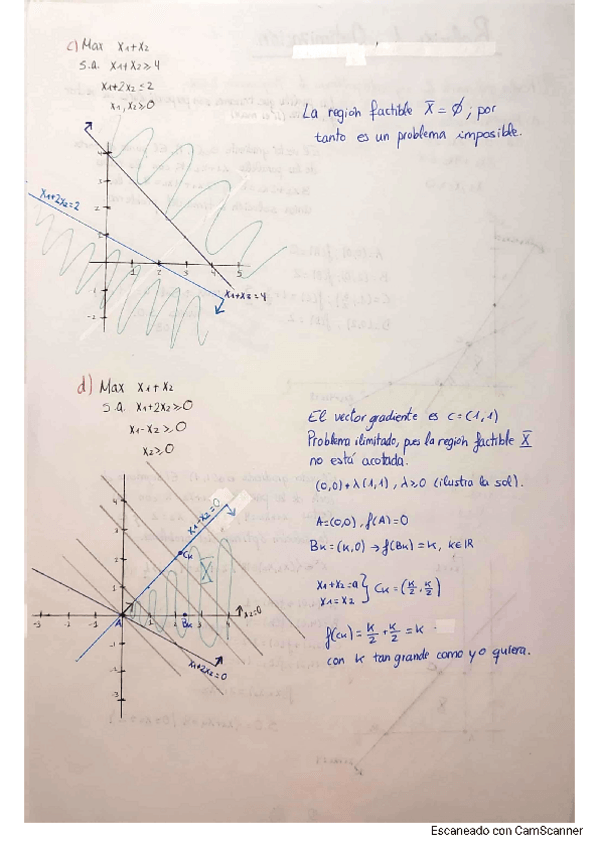 c) Max x1+x2
s.a. x1+x2⩾4
x1+2x2≤2
x1,x2⩾0
La region factible X̅ = ∅; por
tanto es un problema imposible.
x1+2x2=2
4
3
2
1
1 2 3 4 5
-1
-2
x1+x2=4
d) Max x1+x2
s.a. x1+2x2⩾0
x1-x2⩾0
x2⩾0
El vector gradiente es c=(1,1)
Problema ilimitado, pues la region factible X̅
no está acotada.
(0,0)+λ(1,1), λ⩾0 (ilustra la sol).
A=(0,0), f(A)=0
Bk=(k,0) → f(Bk)=k, k∈ℝ
x1+x2=a
x1=x2 } Ck=(k/2, k/2)
f(Ck)=k/2+k/2=k
con k tan grande como yo quiera.
4
3
2
Ck
X̅
x2=0
-3 -2 -1 A 1 Bk 3 4
-1
-3
x1+2x2=0
Escaneado con CamScanner